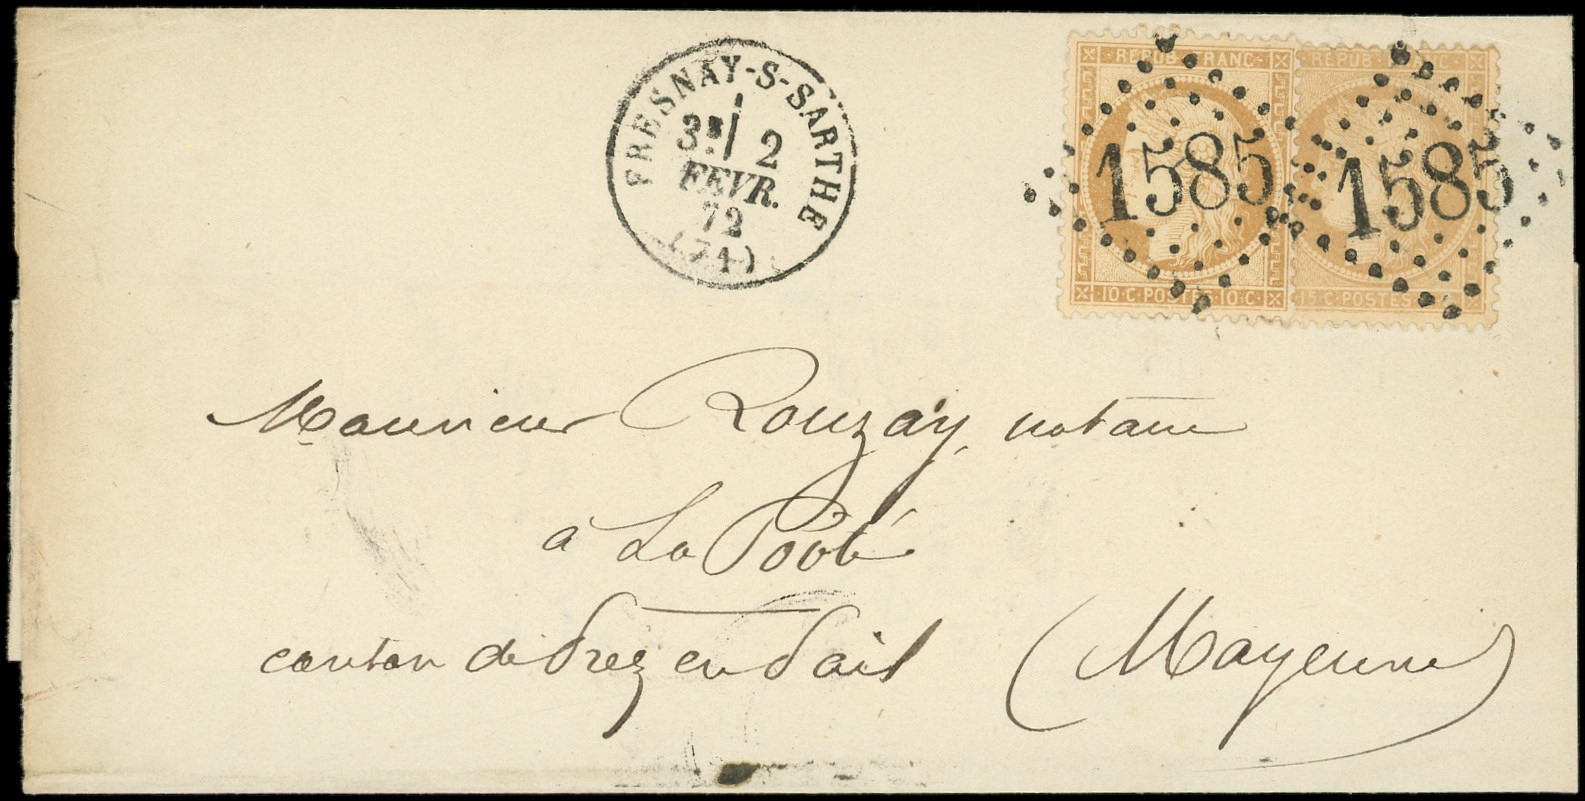 FRESNAY-S-SARTHE
3E 2
FEVR.
72
(71)
REPUB FRANC
1585
10·C·POSTES·10·C
REPUB C
1585
15·C·POSTES
Monsieur Rouzay, notaire
à La Pooté
canton de Prez en Pail (Mayenne)